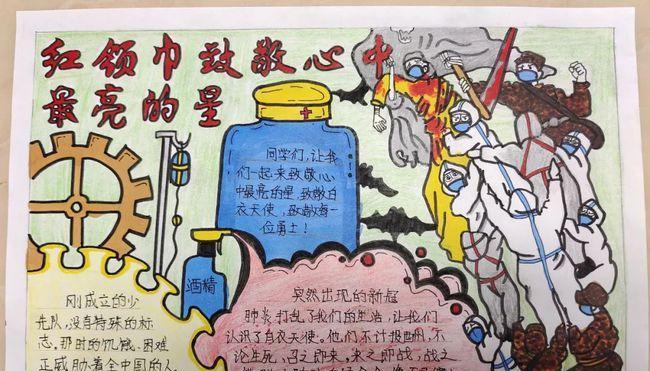 红领巾致敬心中
最亮的星
同学们，让我
们一起来致敬心
中最亮的星，致敬白
衣天使，致敬每一
位勇士！
酒精
刚成立的少
先队，没有特殊的标
志。那时的饥饿、困难
正威胁着全中国的人
突然出现的新冠
肺炎打乱了我们的生活，让我们
认识了白衣天使。他们不计报酬，不
论生死，召之即来，来之即战，战之